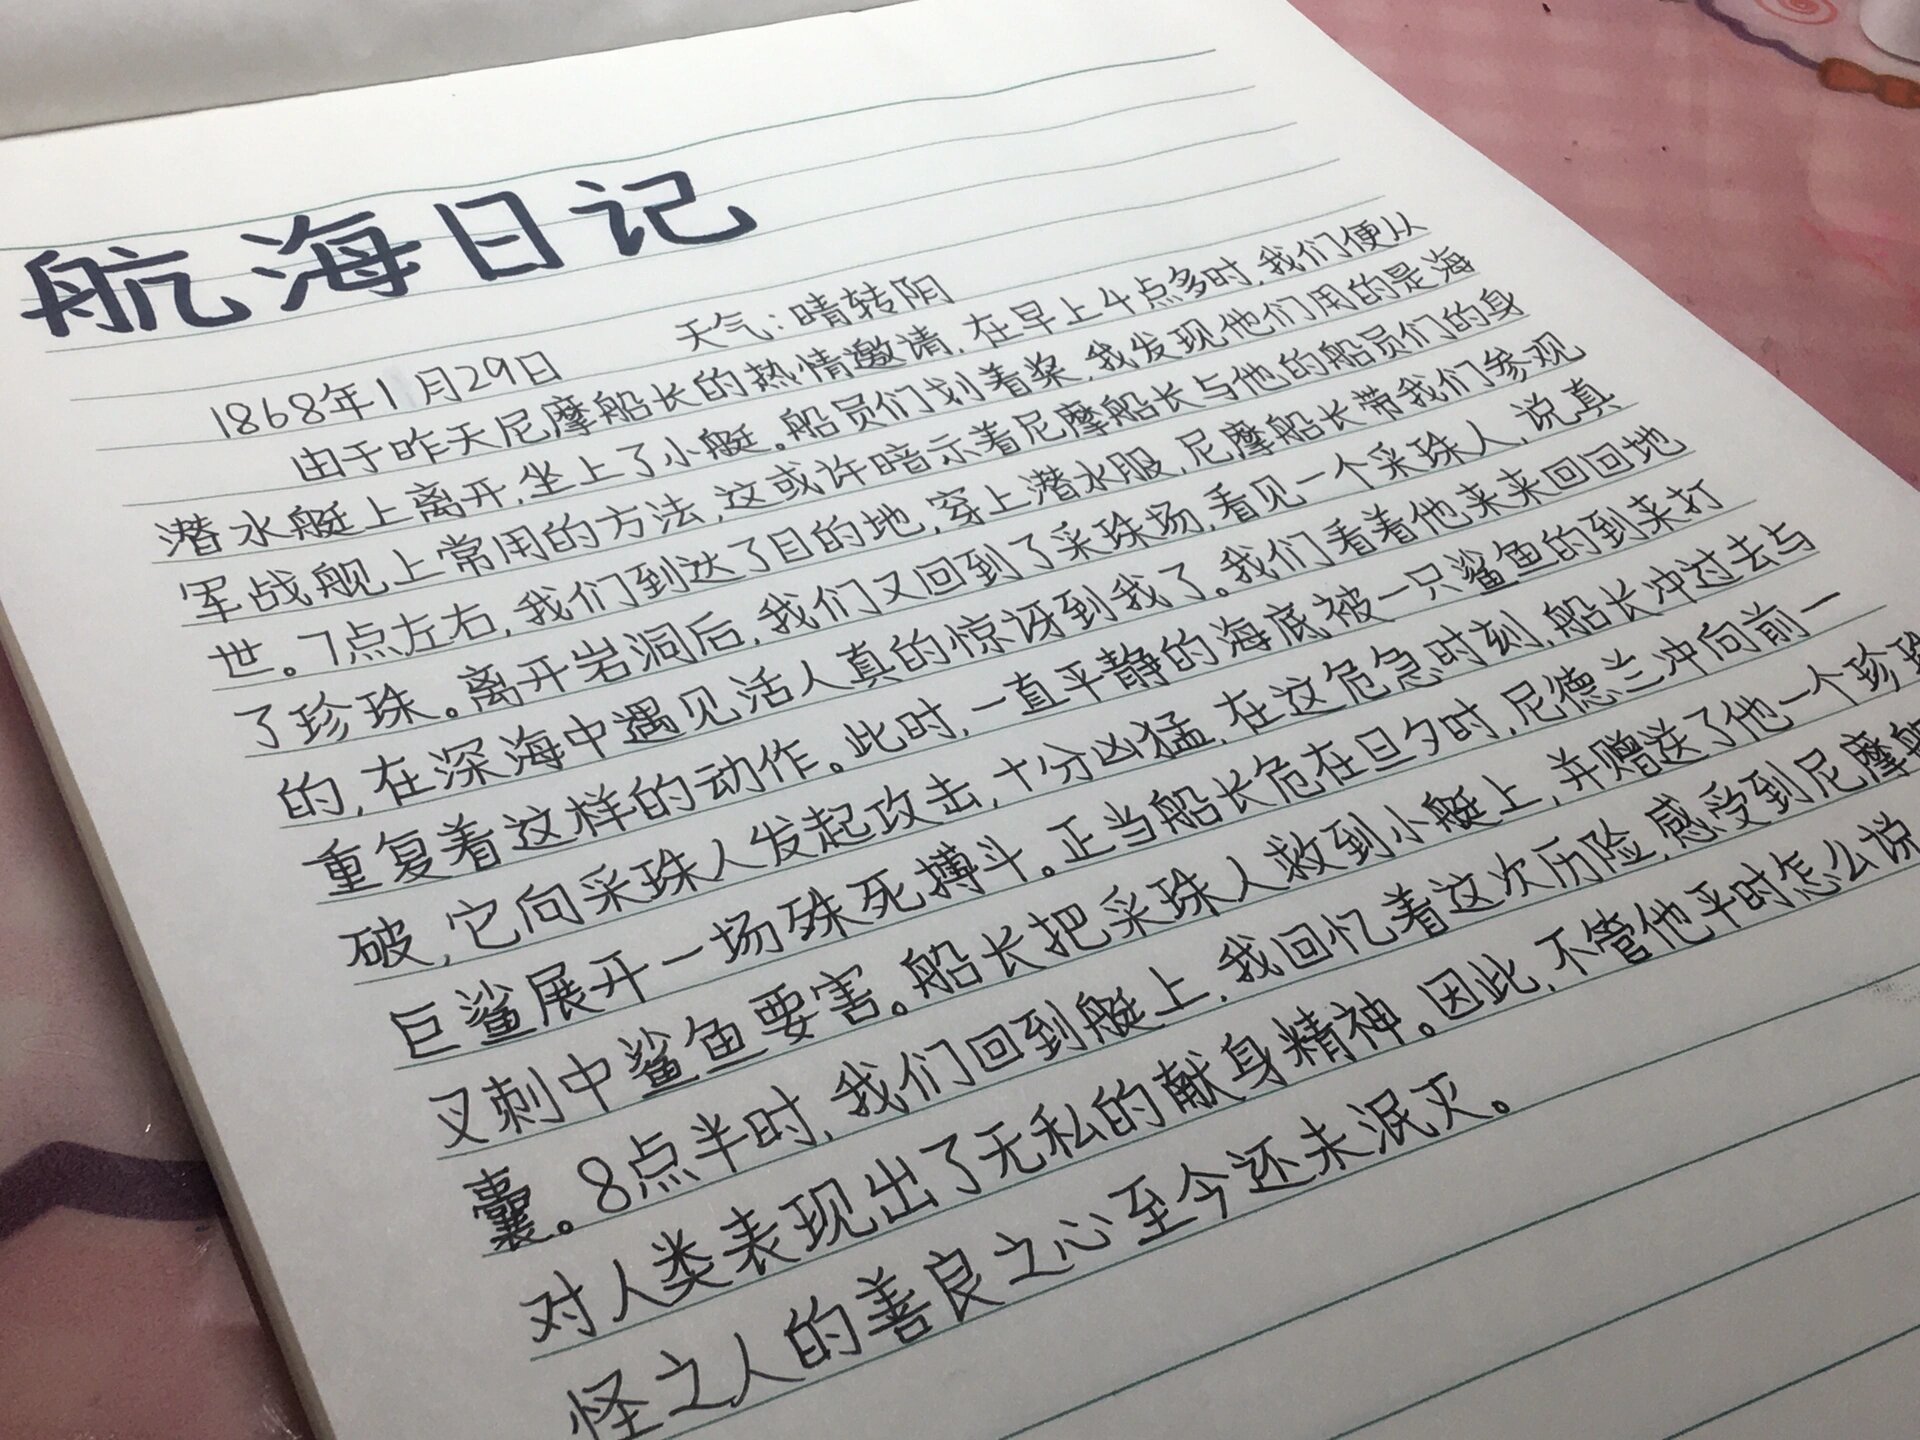 航海日记
1868年1月29日 天气:晴转阴
由于昨天尼摩船长的热情邀请,在早上4点多时,我们便从
潜水艇上离开,坐上了小艇。船员们划着桨,我发现他们用的是海
军战舰上常用的方法,这或许暗示着尼摩船长与他的船员们的身
世。7点左右,我们到达了目的地,穿上潜水服,尼摩船长带我们参观
了珍珠。离开岩洞后,我们又回到了采珠场,看见一个采珠人,说真
的,在深海中遇见活人真的惊讶到我了。我们看着他来来回回地
重复着这样的动作。此时,一直平静的海底被一只鲨鱼的到来打
破,它向采珠人发起攻击,十分凶猛,在这危急时刻,船长冲过去与
巨鲨展开一场殊死搏斗。正当船长危在旦夕时,尼德兰冲向前一
叉刺中鲨鱼要害。船长把采珠人救到小艇上,并赠送了他一个珍珠
囊。8点半时,我们回到艇上,我回忆着这次历险,感受到尼摩船
对人类表现出了无私的献身精神。因此,不管他平时怎么说
怪之人的善良之心至今还未泯灭。